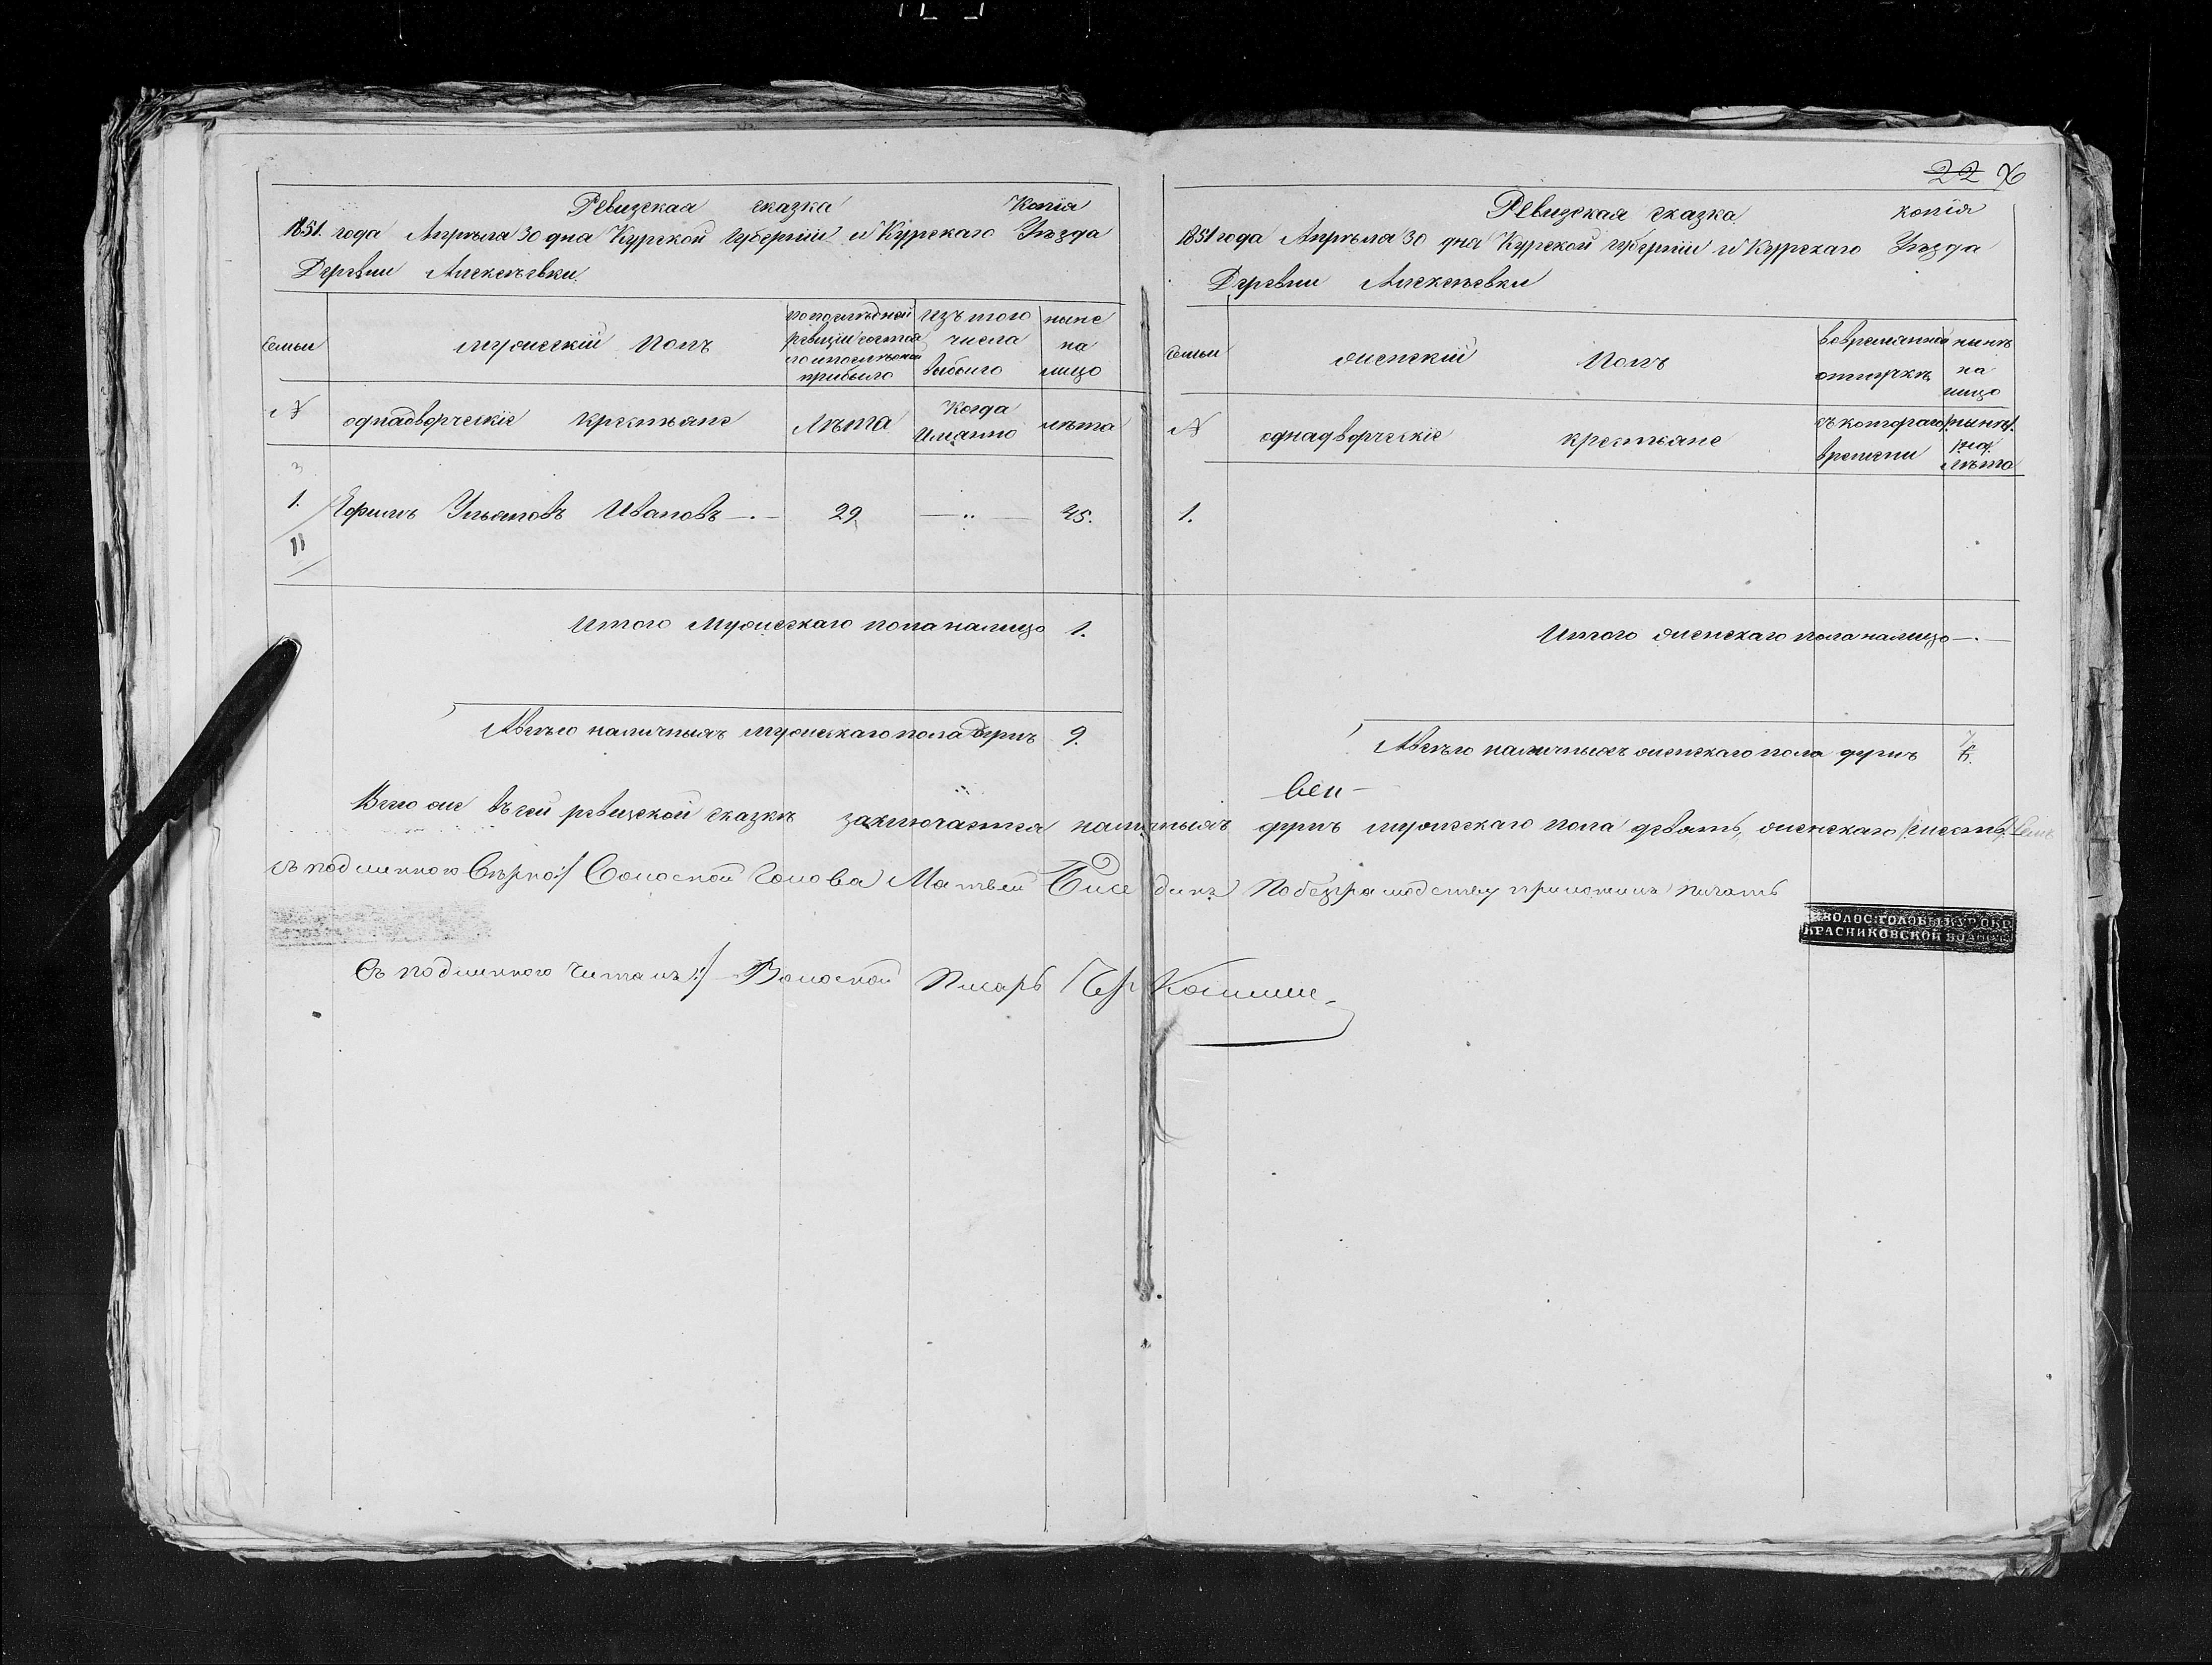 Ревизская сказка Копія
1851. года Апрѣля 30 дня Курской Губерніи и Курскаго Уѣзда
Деревни Алексѣевки
Семьи
мужескій полъ
по последней ревизіи состояло и после прибыло
Изъ того числа выбыло
ныне на лицо
№
однадворческіе крестьяне
Лѣта
Когда Именно
лѣта
1.
11
Ефимъ Ульяновъ Ивановъ —.—
29
— „ —
45.
Итого Мужескаго пола на лицо 1.
А всѣго наличныхъ мужескаго пола душъ 9.
22
Ревизская сказка копія
1851 года Апрѣля 30 дня Курской губерніи и Курскаго Уѣзда
Деревни Алексѣевки
Семьи
женскій Полъ
во временной отлучкѣ
нынѣ на лицо
№
однадворческіе крестьяне
съ котораго времени
лѣта
1.
Итого женскаго пола на лицо —.—
А всѣго наличныхъ женскаго пола душъ
Всего же въ сей ревизской сказкѣ заключается наличныхъ душъ мужескаго пола девять, женскаго шесть, семь
Съ подлинного Верно:/ Волосной Голова Матвей Беседин По безграмотству приложилъ печать
ВОЛОС: ГОЛОВЫ КУР. ОКР.
КРАСНИКОВСКОЙ ВОЛОСТИ
Съ подлинного Читалъ:/ Волосной Писарь